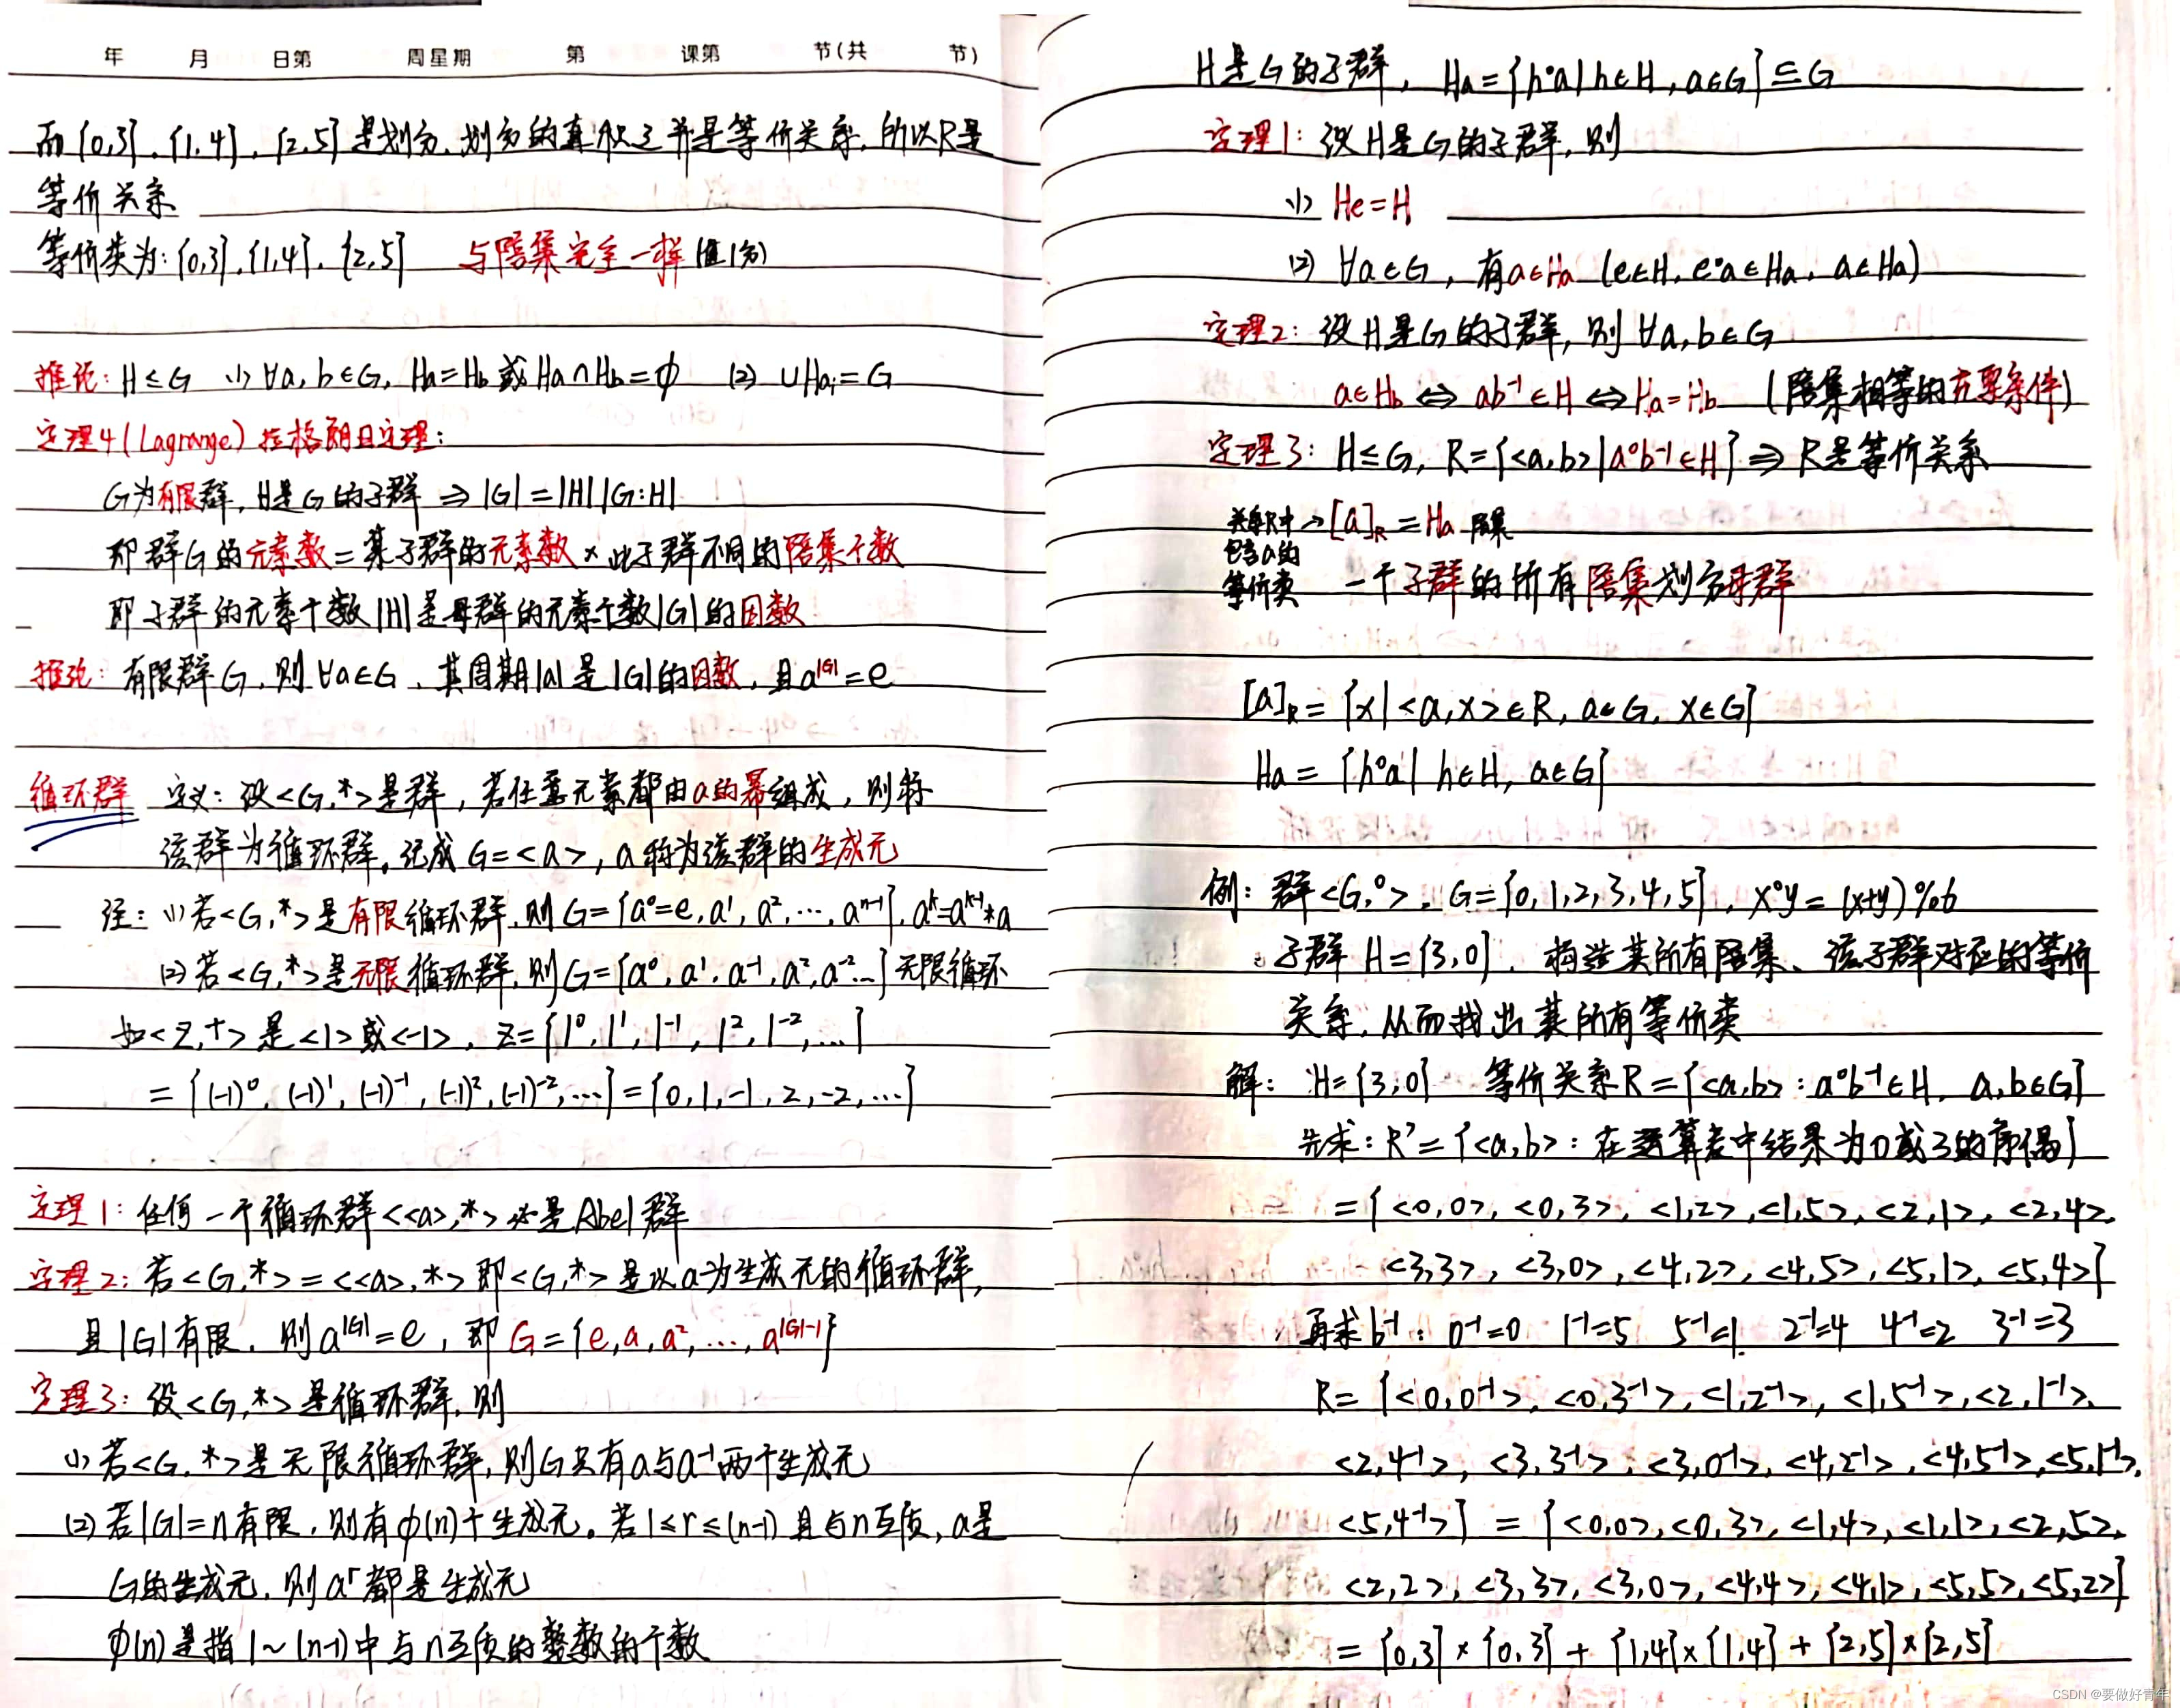 年 月 日第 周星期 第 课第 节(共 节)
而{0,3},{1,4},{2,5}是划分,划分的直积之并是等价关系,所以R是
等价关系
等价类为:{0,3},{1,4},{2,5} 与陪集完全一样(值|分)
推论:H≤G (1)∀a,b∈G, Ha=Hb或Ha∩Hb=φ (2) ∪Hai=G
定理4(Lagrange)拉格朗日定理:
G为有限群,H是G的子群 ⇒|G|=|H||G:H|
即群G的元素数=某子群的元素数×此子群不同的陪集个数
即子群的元素个数|H|是母群的元素个数|G|的因数
推论:有限群G,则∀a∈G,其周期|a|是|G|的因数,且a^|G|=e
循环群 定义:设<G,*>是群,若任意元素都由a的幂组成,则称
该群为循环群。记成G=<a>,a称为该群的生成元
注:(1)若<G,*>是有限循环群,则G={a⁰=e,a¹,a²,…,aⁿ⁻¹},aᵏ=aᵏ⁻¹*a
(2)若<G,*>是无限循环群,则G={a⁰,a¹,a⁻¹,a²,a⁻²…}无限循环
如<Z,+>是<1>或<-1>,Z={1⁰,1¹,1⁻¹,1²,1⁻²,…}
={(-1)⁰,(-1)¹,(-1)⁻¹,(-1)²,(-1)⁻²,…}={0,1,-1,2,-2,…}
定理1:任何一个循环群<<a>,*>必是Abel群
定理2:若<G,*>=<<a>,*>即<G,*>是以a为生成元的循环群,
且|G|有限,则a^|G|=e,即G={e,a,a²,…,a^|G|-1}
定理3:设<G,*>是循环群,则
(1)若<G,*>是无限循环群,则G只有a与a⁻¹两个生成元
(2)若|G|=n有限,则有φ(n)个生成元。若1≤r≤(n-1)且与n互质,a是
G的生成元,则aʳ都是生成元
φ(n)是指1~(n-1)中与n互质的整数的个数
H是G的子群,Ha={h°a|h∈H,a∈G}⊆G
定理1:设H是G的子群,则
(1) He=H
(2) ∀a∈G,有a∈Ha (e∈H,e°a∈Ha,a∈Ha)
定理2:设H是G的子群,则∀a,b∈G
a∈Hb⇔ab⁻¹∈H⇔Ha=Hb (陪集相等的充要条件)
定理3:H≤G,R={<a,b>|a°b⁻¹∈H}⇒R是等价关系
关系R中→[a]R=Ha 陪集
包含a的
等价类 一个子群的所有陪集划分母群
[a]R={x|<a,x>∈R,a∈G,x∈G}
Ha={h°a|h∈H,a∈G}
例:群<G,°>,G={0,1,2,3,4,5},x°y=(x+y)%6
子群H={3,0},构造其所有陪集、该子群对应的等价
关系,从而找出其所有等价类
解:H={3,0} 等价关系R={<a,b>:a°b⁻¹∈H,a,b∈G}
先求:R'={<a,b>:在运算表中结果为0或3的序偶}
={<0,0>,<0,3>,<1,2>,<1,5>,<2,1>,<2,4>,
<3,3>,<3,0>,<4,2>,<4,5>,<5,1>,<5,4>}
再求b⁻¹:0⁻¹=0 1⁻¹=5 5⁻¹=1 2⁻¹=4 4⁻¹=2 3⁻¹=3
R={<0,0⁻¹>,<0,3⁻¹>,<1,2⁻¹>,<1,5⁻¹>,<2,1⁻¹>,
<2,4⁻¹>,<3,3⁻¹>,<3,0⁻¹>,<4,2⁻¹>,<4,5⁻¹>,<5,1⁻¹>,
<5,4⁻¹>}={<0,0>,<0,3>,<1,4>,<1,1>,<2,5>,
<2,2>,<3,3>,<3,0>,<4,4>,<4,1>,<5,5>,<5,2>}
={0,3}×{0,3}+{1,4}×{1,4}+{2,5}×{2,5}
CSDN @要做好青年